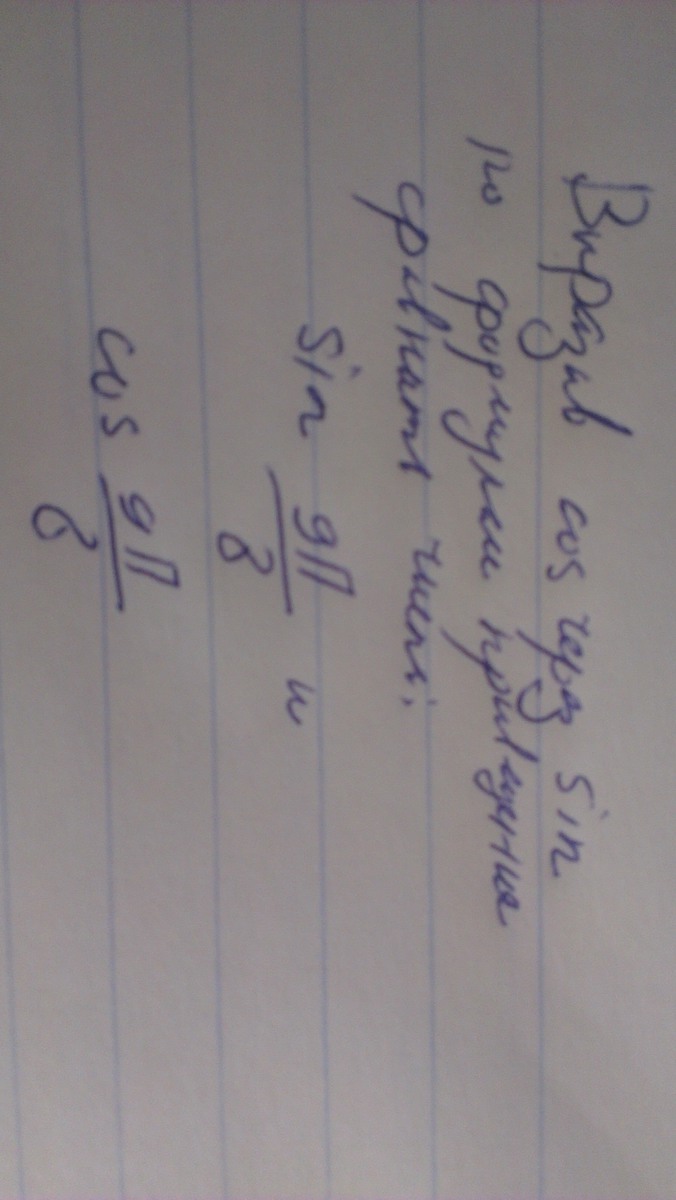 Выразив cos через sin
по формулам приведения
сравнить числа:
sin 9П/8 и
cos 9П/8